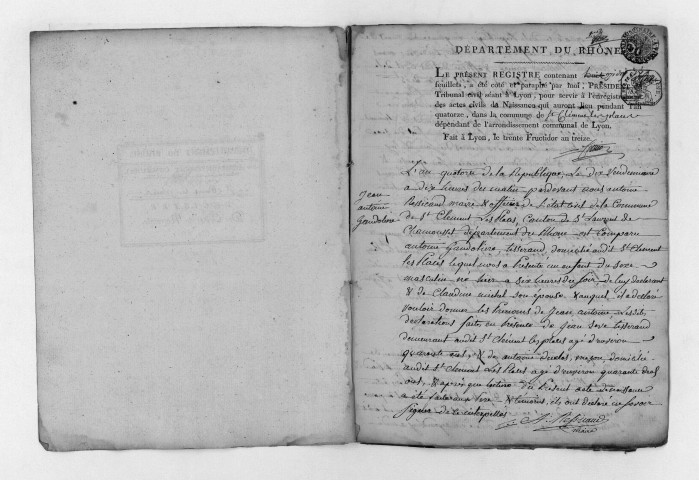 DÉPARTEMENT DU RHÔNE
LE PRÉSENT REGISTRE contenant huit
feuillets, a été coté et paraphé par moi, PRÉSIDENT
Tribunal civil séant à Lyon, pour servir à l'enregistrement
des actes civils de Naissance qui auront lieu pendant l'an
quatorze, dans la commune de St Clément les places
dépendant de l'arrondissement communal de Lyon.
Fait à Lyon, le trente Fructidor an treize.
L'an quatorze de la République, le dix Vendemiaire
a dix heures du matin pardevant nous antoine
maire & officier de l'état civil de la Commune
de St Clement Les Places, Canton de St Laurent de
Chamousset département du Rhône est comparu
antoine Gandoliere tisserand, domicilié audit St Clement
les Places lequel nous a Présenté un enfant du sexe
masculin né hier a six heures du soir, de luy declarant
& de Claudine michel son épouse & auquel il a declaré
vouloir donner les Prenoms de Jean antoine lesdites
declarations faites en Présence de Jean tisserand
demeurant audit St Clement les places agé d'environ
quarante ans, & de antoine maçon, domicilié
audit St Clement Les Places agé d'environ quarante
ans, & après que lecture du Présent acte de naissance
a été faite aux Pere & temoins, ils ont declaré ne savoir
signer de ce interpellés
maire
Jean
antoine
Gandoliere